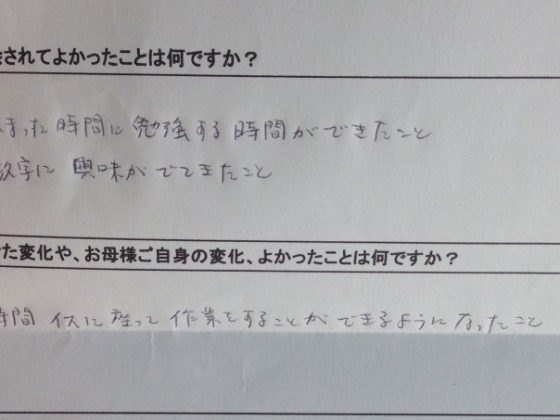 されてよかったことは何ですか？
まった時間に勉強する時間ができたこと
数字に興味がでてきたこと
た変化や、お母様ご自身の変化、よかったことは何ですか？
時間 イスに座って 作業をすることができるようになったこと